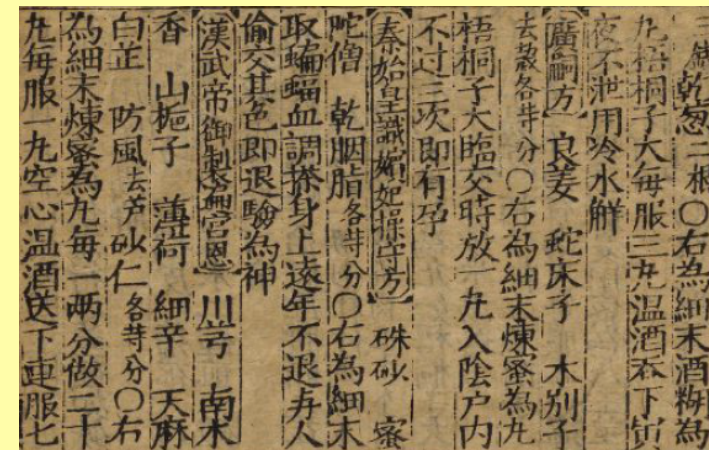 乾葱二根〇右為細末酒糊為
九梧桐子大每服三九温酒吞下實
夜不泄用冷水解
廣嗣方 良姜 蛇床子 木別子
去殼各等分〇右為細末煉蜜為九
梧桐子大臨交時放一九入陰户内
不过三次即有孕
秦始皇識嬪妃操守方 硃砂 蜜
陀僧 乾胭脂各等分〇右為細末
取蝙蝠血調搽身上遠年不退与人
偷交其色即退驗為神
漢武帝御制宮恩 川芎 南木
香 山梔子 薄荷 細辛 天麻
白芷 防風去芦 砂仁各等分〇右
為細末煉蜜為九每一兩分做二十
九每服一九空心温酒送下連服七